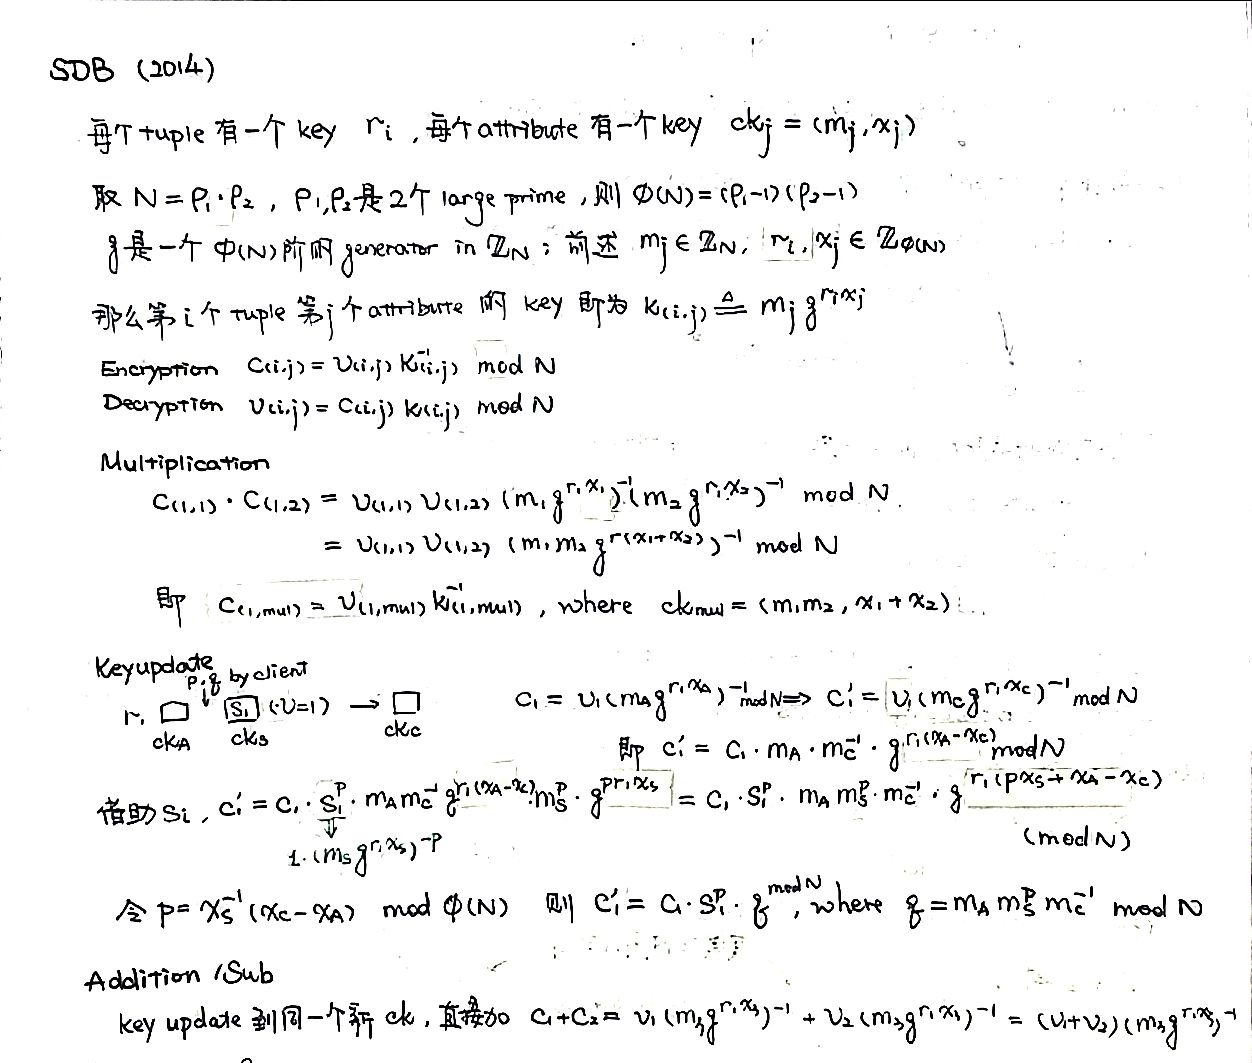 SDB (2014)
每个 tuple 有一个 key rᵢ , 每个 attribute 有一个 key ckⱼ = (mⱼ, xⱼ)
取 N = P₁·P₂ , P₁,P₂是2个 large prime , 则 Φ(N) = (P₁-1)(P₂-1)
g是一个 Φ(N)阶的 generator in ℤ_N ; 前述 mⱼ ∈ ℤ_N, rᵢ, xⱼ ∈ ℤ_Φ(N)
那么第 i 个 tuple 第 j 个 attribute 的 key 即为 K(i,j) ≜ mⱼ g^{rᵢxⱼ}
Encryption C(i,j) = V(i,j) K⁻¹(i,j) mod N
Decryption V(i,j) = C(i,j) K(i,j) mod N
Multiplication
C(1,1) · C(1,2) = V(1,1) V(1,2) (m₁ g^{r₁x₁})⁻¹ (m₂ g^{r₁x₂})⁻¹ mod N
= V(1,1) V(1,2) (m₁m₂ g^{r(x₁+x₂)})⁻¹ mod N
即 C(1,mul) = V(1,mul) K⁻¹(1,mul) , where ck_mul = (m₁m₂, x₁+x₂)
Key update
p,q by client
r₁ □ ↓ [S₁] (·V=1) → □
ck_A ck_S ck_C
C₁ = V₁(m_A g^{r₁x_A})⁻¹ mod N ⟹ C₁' = V₁(m_C g^{r₁x_C})⁻¹ mod N
即 C₁' = C₁ · m_A · m_C⁻¹ · g^{r₁(x_A-x_C)} mod N
借助 Sᵢ, C₁' = C₁ · S₁^p · m_A m_C⁻¹ g^{r₁(x_A-x_C)} · m_S^p · g^{pr₁x_S} = C₁ · S₁^p · m_A m_S^p · m_C⁻¹ · g^{r₁(px_S+x_A-x_C)}
⇓ (mod N)
1·(m_S g^{r₁x_S})^{-p}
令 p = x_S⁻¹(x_C-x_A) mod Φ(N) 则 C₁' = C₁·S₁^p · q mod N , where q = m_A m_S^p m_C⁻¹ mod N
Addition / Sub
key update 到同一个新 ck, 直接加 C₁+C₂ = V₁(m₃g^{r₁x₃})⁻¹ + V₂(m₃g^{r₁x₃})⁻¹ = (V₁+V₂)(m₃g^{r₁x₃})⁻¹